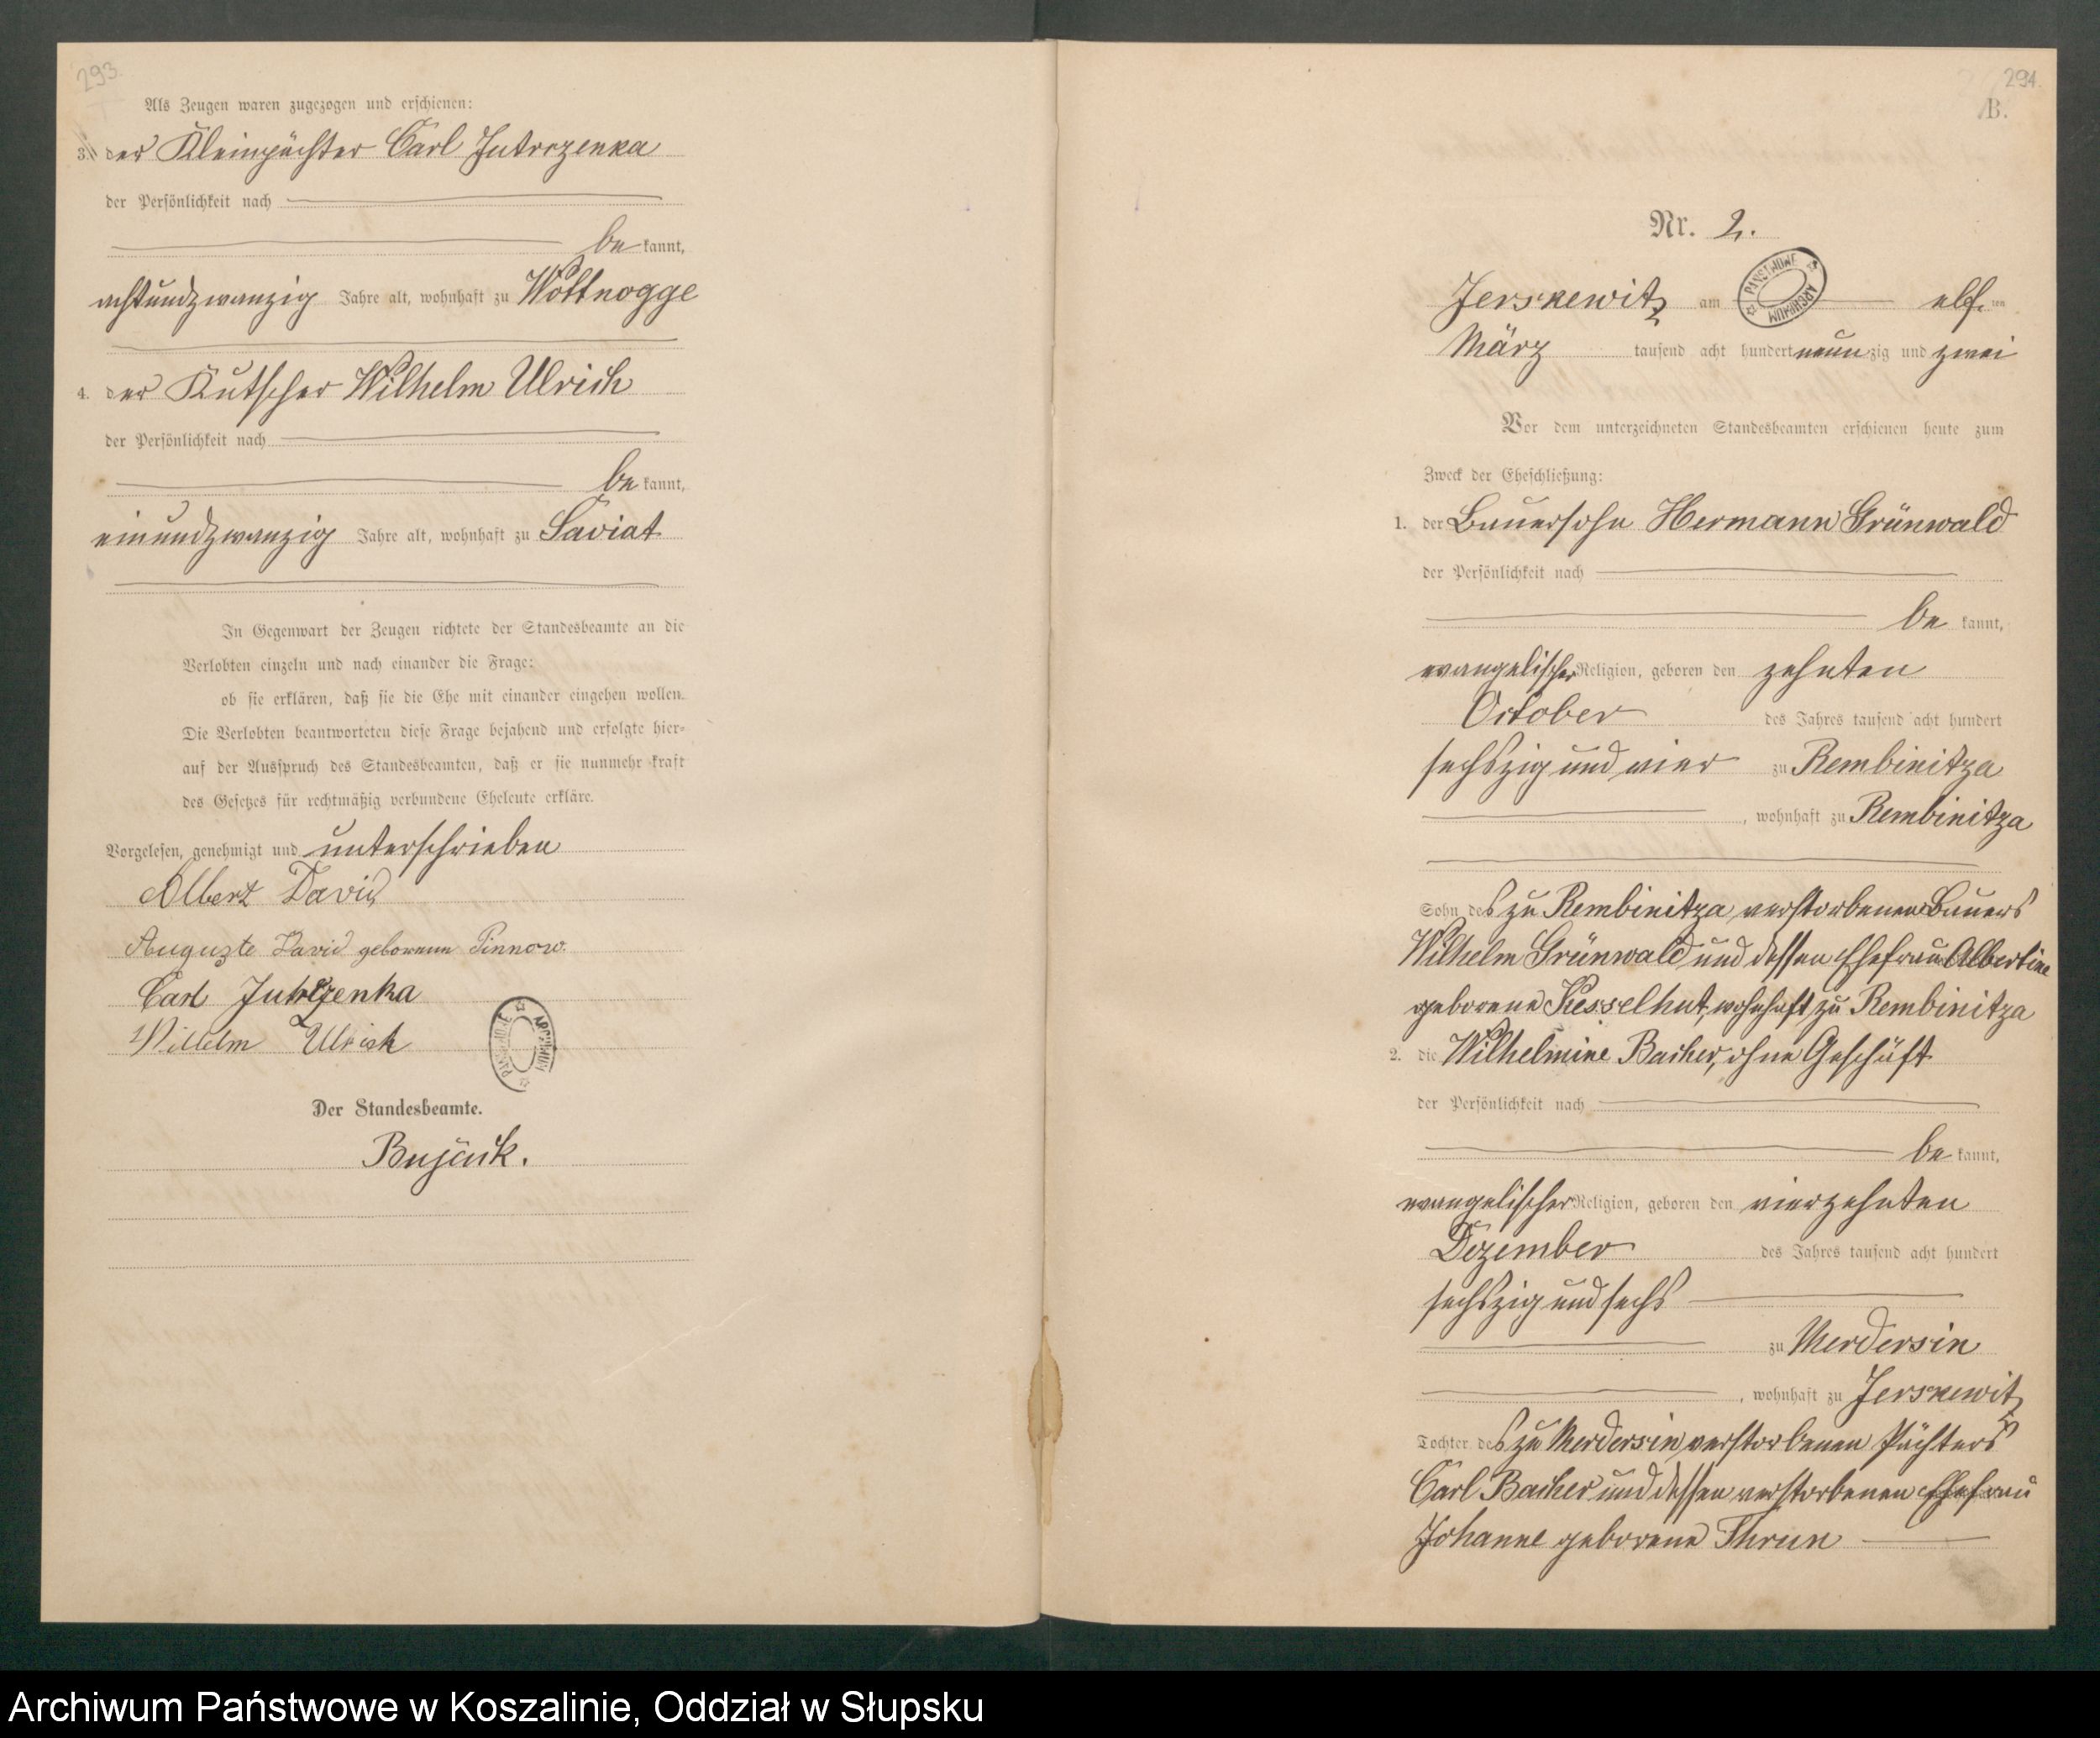 293.
Als Zeugen waren zugezogen und erschienen:
3. der Kleinpächter Carl Jutrzenka
der Persönlichkeit nach
be kannt,
achtundzwanzig Jahre alt, wohnhaft zu Wottnogge
4. der Kutscher Wilhelm Ulrich
der Persönlichkeit nach
be kannt,
einundzwanzig Jahre alt, wohnhaft zu Saviat
In Gegenwart der Zeugen richtete der Standesbeamte an die
Verlobten einzeln und nach einander die Frage:
ob sie erklären, daß sie die Ehe mit einander eingehen wollen.
Die Verlobten beantworteten diese Frage bejahend und erfolgte hier-
auf der Ausspruch des Standesbeamten, daß er sie nunmehr kraft
des Gesetzes für rechtmäßig verbundene Eheleute erkläre.
Vorgelesen, genehmigt und unterschrieben
Albert David
Auguste David geborenen Pinnow.
Carl Jutrzenka
Wilhelm Ulrich
ARCHIWUM PAŃSTWOWE
Der Standesbeamte.
Bujack.
294.
B.
Nr. 2.
Jerskewitz am elf ten
PAŃSTWOWE ARCHIWUM
März tausend acht hundert neun zig und zwei
Vor dem unterzeichneten Standesbeamten erschienen heute zum
Zweck der Eheschließung:
1. der Bauersohn Hermann Grünwald
der Persönlichkeit nach
be kannt,
evangelischer Religion, geboren den zehnten
October des Jahres tausend acht hundert
sechszig und vier zu Rembinitza
, wohnhaft zu Rembinitza
Sohn des zu Rembinitza verstorbenen Bauers
Wilhelm Grünwald und dessen Ehefrau Albertine
geborene Kesselhut, wohnhaft zu Rembinitza
2. die Wilhelmine Bacher, ohne Geschäft
der Persönlichkeit nach
be kannt,
evangelischer Religion, geboren den vierzehnten
Dezember des Jahres tausend acht hundert
sechszig und sechs
zu Merdersin
, wohnhaft zu Jerskewitz
Tochter des zu Merdersin verstorbenen Pächters
Carl Bacher und dessen verstorbenen Ehefrau
Johanne geborene Thrun
Archiwum Państwowe w Koszalinie, Oddział w Słupsku